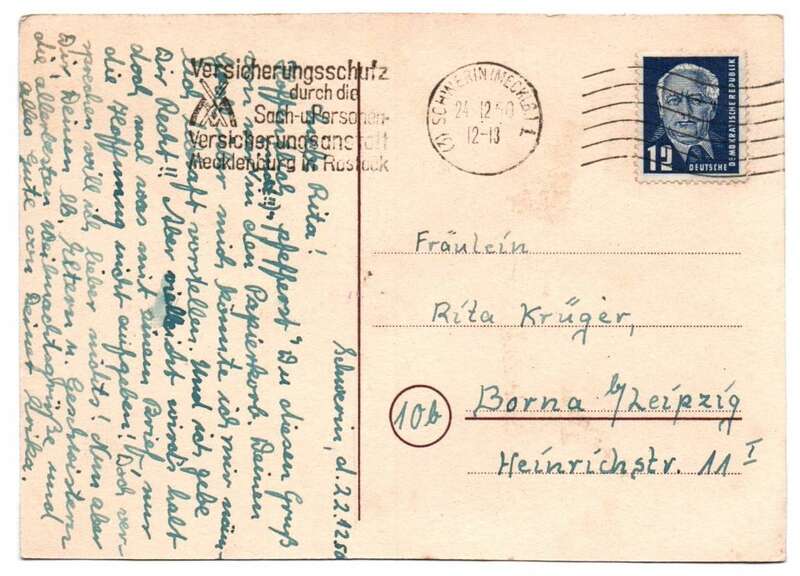 Schwerin, d. 22.12.50
Liebe Rita!
Hoffentlich „pfefferst“ Du diesen Gruß
in den Papierkorb. Deinen
mich könnte ich mir näm-
lich lebhaft vorstellen. Und ich gebe
Dir Recht!! Aber vielleicht wird's halt
doch mal was mit einem Brief, nur
die Hoffnung nicht aufgeben! Doch ver-
sprechen will ich lieber nichts! Nun aber
Dir, Deinen lb. Eltern u. Geschwistern
die allerbesten Weihnachtsgrüße und
alles Gute von Deiner Erika.
Versicherungsschutz
durch die
Sach-u.Personen-
Versicherungsanstalt
Mecklenburg in Rostock
(3) SCHWERIN (MECKLB) 1
24.12.50
12-13
12
DEUTSCHE
DEMOKRATISCHE REPUBLIK
Fräulein
Rita Krüger,
10b
Borna b/Leipzig
Heinrichstr. 11 I